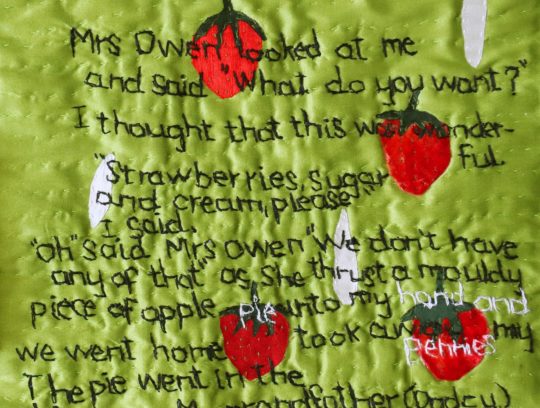 Mrs Owen looked at me
and said "What do you want?"
I thought that this was wonder-
ful.
"Strawberries, sugar
and cream, please"
I said.
"oh" said Mrs Owen "We don't have
any of that" as she thrust a mouldy
piece of apple pie into my hand and
we went home took my
pennies
The pie went in the
My grandfather (Dadcy)